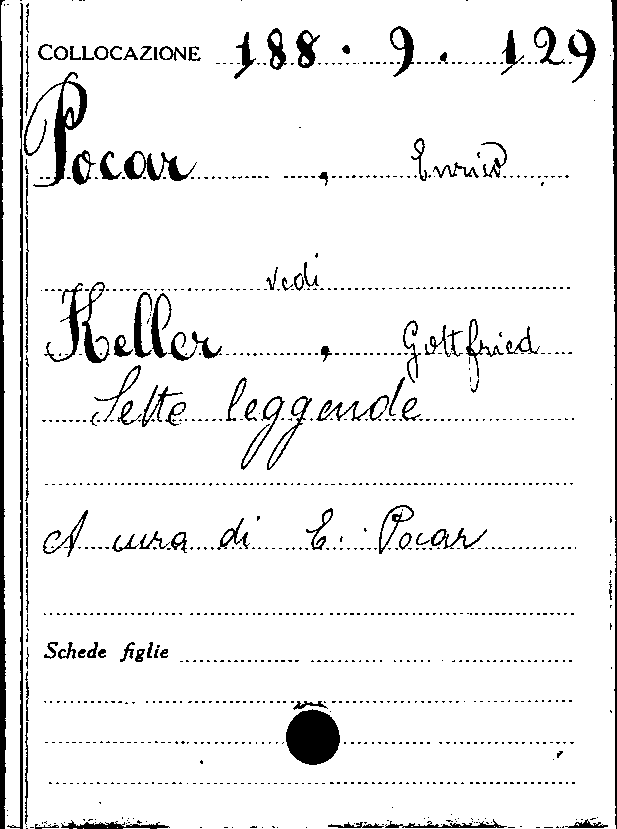 COLLOCAZIONE 188 . 9 . 129
Pocar , Enrico
vedi
Keller , Gottfried
Sette leggende
A cura di E. Pocar
Schede figlie